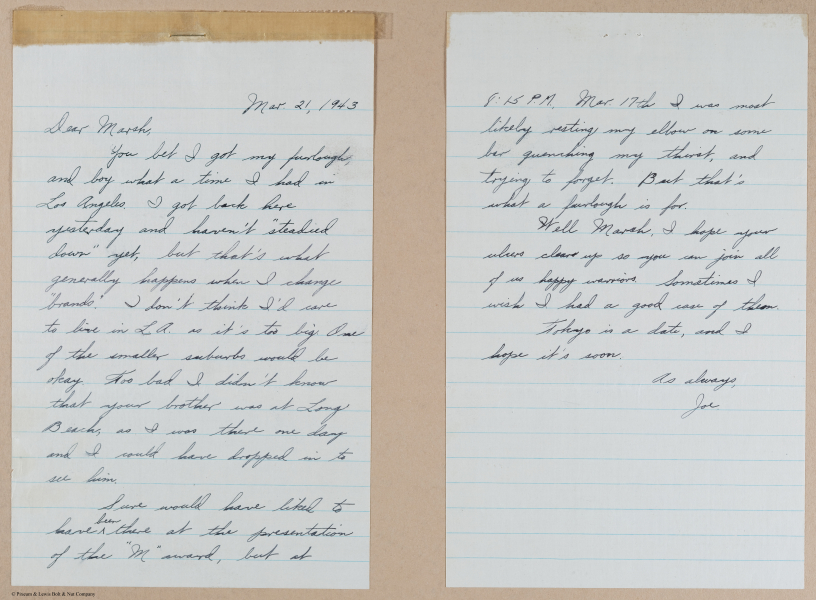 Mar. 21, 1943
Dear Marsh,
You bet I got my furlough,
and boy what a time I had in
Los Angeles. I got back here
yesterday and haven't "steadied
down" yet, but that's what
generally happens when I change
"brands." I don't think I'd care
to live in L.A. as it's too big. One
of the smaller suburbs would be
okay. Too bad I didn't know
that your brother was at Long
Beach, as I was there one day
and I could have dropped in to
see him.
Sure would have liked to
have been there at the presentation
of the "M" award, but at
8:15 P.M. Mar. 17th I was most
likely resting my elbow on some
bar quenching my thirst, and
trying to forget. But that's
what a furlough is for.
Well Marsh, I hope your
ulcers clears up so you can join all
of us happy warriors. Sometimes I
wish I had a good case of them.
Tokyo is a date, and I
hope it's soon.
As always,
Joe
© Possum & Lewis Bolt & Nut Company